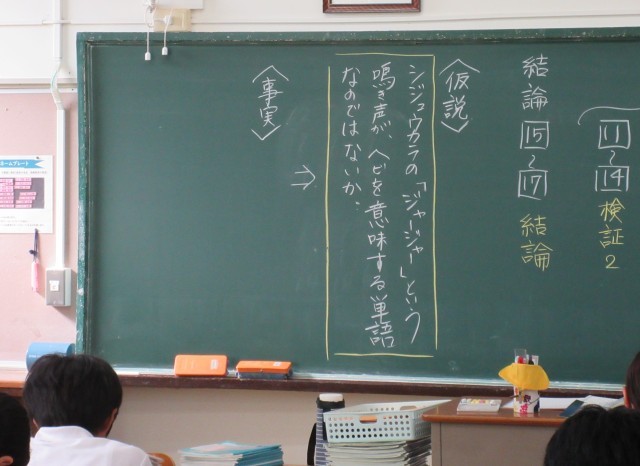 11
～
14
検証2
結論
15
～
17
結論
〈仮説〉
シジュウカラの「ジャージャー」という
鳴き声が、ヘビを意味する単語
なのではないか。
⇒
〈事実〉